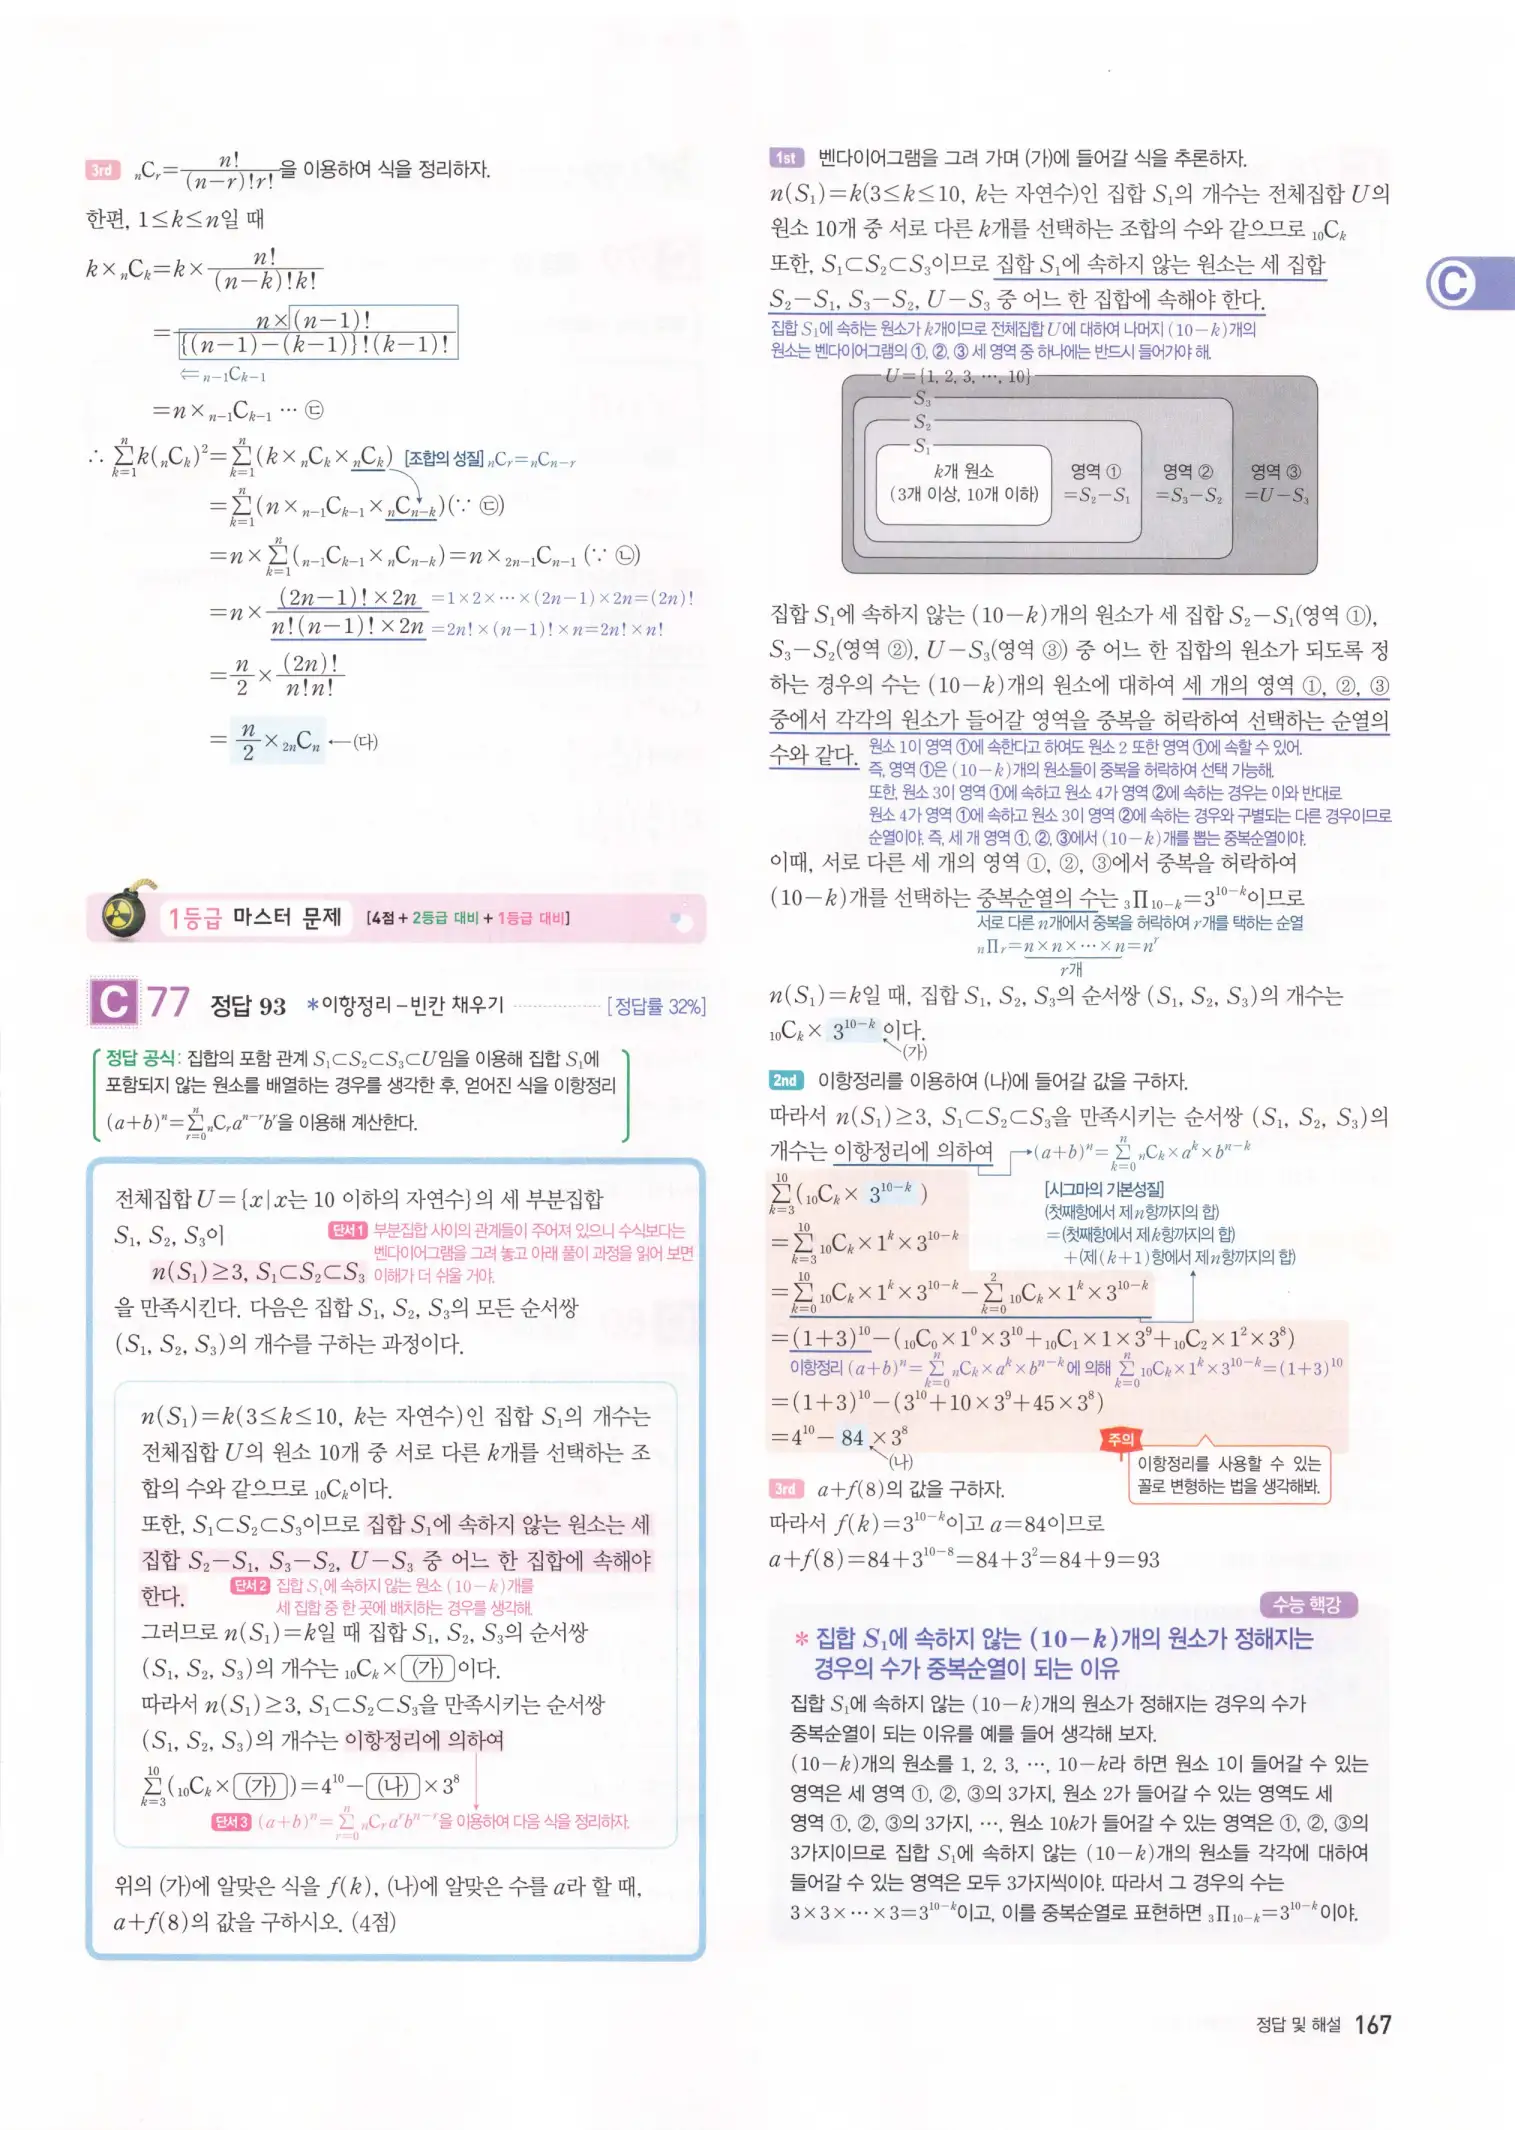 3rd nCr=n!/((n-r)!r!)을 이용하여 식을 정리하자.
한편, 1≤k≤n일 때
k×nCk=k×n!/((n-k)!k!)
=n×(n-1)!/({(n-1)-(k-1)}!(k-1)!)
⇐ n-1Ck-1
=n×n-1Ck-1 … ㉢
∴ Σ(k=1→n) k(nCk)²=Σ(k=1→n)(k×nCk×nCk) [조합의 성질] nCr=nCn-r
=Σ(k=1→n)(n×n-1Ck-1×nCn-k)(∵ ㉢)
=n×Σ(k=1→n)(n-1Ck-1×nCn-k)=n×2n-1Cn-1 (∵ ㉡)
=n×(2n-1)!×2n/(n!(n-1)!×2n) =1×2×…×(2n-1)×2n=(2n)!
=2n!×(n-1)!×n=2n!×n!
=n/2×(2n)!/(n!n!)
=n/2×2nCn ←(다)
1등급 마스터 문제 [4점+2등급 대비+1등급 대비]
C 77 정답 93 *이항정리-빈칸 채우기 [정답률 32%]
정답 공식: 집합의 포함 관계 S₁⊂S₂⊂S₃⊂U임을 이용해 집합 S₁에
포함되지 않는 원소를 배열하는 경우를 생각한 후, 얻어진 식을 이항정리
(a+b)ⁿ=Σ(r=0→n) nCr aⁿ⁻ʳbʳ을 이용해 계산한다.
전체집합 U={x|x는 10 이하의 자연수}의 세 부분집합
S₁, S₂, S₃이 단서1 부분집합 사이의 관계들이 주어져 있으니 수식보다는
벤다이어그램을 그려 놓고 아래 풀이 과정을 읽어 보면
n(S₁)≥3, S₁⊂S₂⊂S₃ 이해가 더 쉬울 거야.
을 만족시킨다. 다음은 집합 S₁, S₂, S₃의 모든 순서쌍
(S₁, S₂, S₃)의 개수를 구하는 과정이다.
n(S₁)=k(3≤k≤10, k는 자연수)인 집합 S₁의 개수는
전체집합 U의 원소 10개 중 서로 다른 k개를 선택하는 조
합의 수와 같으므로 10Ck이다.
또한, S₁⊂S₂⊂S₃이므로 집합 S₁에 속하지 않는 원소는 세
집합 S₂-S₁, S₃-S₂, U-S₃ 중 어느 한 집합에 속해야
한다. 단서2 집합 S₁에 속하지 않는 원소 (10-k)개를
세 집합 중 한 곳에 배치하는 경우를 생각해.
그러므로 n(S₁)=k일 때 집합 S₁, S₂, S₃의 순서쌍
(S₁, S₂, S₃)의 개수는 10Ck×(가)이다.
따라서 n(S₁)≥3, S₁⊂S₂⊂S₃을 만족시키는 순서쌍
(S₁, S₂, S₃)의 개수는 이항정리에 의하여
Σ(k=3→10)(10Ck×(가))=4¹⁰-(나)×3⁸
단서3 (a+b)ⁿ=Σ(r=0→n) nCr aʳbⁿ⁻ʳ을 이용하여 다음 식을 정리하자.
위의 (가)에 알맞은 식을 f(k), (나)에 알맞은 수를 a라 할 때,
a+f(8)의 값을 구하시오. (4점)
1st 벤다이어그램을 그려 가며 (가)에 들어갈 식을 추론하자.
n(S₁)=k(3≤k≤10, k는 자연수)인 집합 S₁의 개수는 전체집합 U의
원소 10개 중 서로 다른 k개를 선택하는 조합의 수와 같으므로 10Ck
또한, S₁⊂S₂⊂S₃이므로 집합 S₁에 속하지 않는 원소는 세 집합
S₂-S₁, S₃-S₂, U-S₃ 중 어느 한 집합에 속해야 한다.
집합 S₁에 속하는 원소가 k개이므로 전체집합 U에 대하여 나머지 (10-k)개의
원소는 벤다이어그램의 ①, ②, ③ 세 영역 중 하나에는 반드시 들어가야 해.
U={1, 2, 3, …, 10}
S₃
S₂
S₁
k개 원소 영역 ① 영역 ② 영역 ③
(3개 이상, 10개 이하) =S₂-S₁ =S₃-S₂ =U-S₃
집합 S₁에 속하지 않는 (10-k)개의 원소가 세 집합 S₂-S₁(영역 ①),
S₃-S₂(영역 ②), U-S₃(영역 ③) 중 어느 한 집합의 원소가 되도록 정
하는 경우의 수는 (10-k)개의 원소에 대하여 세 개의 영역 ①, ②, ③
중에서 각각의 원소가 들어갈 영역을 중복을 허락하여 선택하는 순열의
수와 같다. 원소 1이 영역 ①에 속한다고 하여도 원소 2 또한 영역 ①에 속할 수 있어.
즉, 영역 ①은 (10-k)개의 원소들이 중복을 허락하여 선택 가능해.
또한, 원소 3이 영역 ①에 속하고 원소 4가 영역 ②에 속하는 경우는 이와 반대로
원소 4가 영역 ①에 속하고 원소 3이 영역 ②에 속하는 경우와 구별되는 다른 경우이므로
순열이야. 즉, 세 개 영역 ①, ②, ③에서 (10-k)개를 뽑는 중복순열이야.
이때, 서로 다른 세 개의 영역 ①, ②, ③에서 중복을 허락하여
(10-k)개를 선택하는 중복순열의 수는 3Π10-k=3¹⁰⁻ᵏ이므로
서로 다른 n개에서 중복을 허락하여 r개를 택하는 순열
nΠr=n×n×…×n=nʳ
r개
n(S₁)=k일 때, 집합 S₁, S₂, S₃의 순서쌍 (S₁, S₂, S₃)의 개수는
10Ck× 3¹⁰⁻ᵏ 이다.
(가)
2nd 이항정리를 이용하여 (나)에 들어갈 값을 구하자.
따라서 n(S₁)≥3, S₁⊂S₂⊂S₃을 만족시키는 순서쌍 (S₁, S₂, S₃)의
개수는 이항정리에 의하여 (a+b)ⁿ=Σ(k=0→n) nCk×aᵏ×bⁿ⁻ᵏ
Σ(k=3→10)(10Ck× 3¹⁰⁻ᵏ ) [시그마의 기본성질]
(첫째항에서 제n항까지의 합)
=Σ(k=3→10) 10Ck×1ᵏ×3¹⁰⁻ᵏ =(첫째항에서 제k항까지의 합)
+(제(k+1)항에서 제n항까지의 합)
=Σ(k=0→10) 10Ck×1ᵏ×3¹⁰⁻ᵏ-Σ(k=0→2) 10Ck×1ᵏ×3¹⁰⁻ᵏ
=(1+3)¹⁰-(10C0×1⁰×3¹⁰+10C1×1×3⁹+10C2×1²×3⁸)
이항정리 (a+b)ⁿ=Σ(k=0→n) nCk×aᵏ×bⁿ⁻ᵏ에 의해 Σ(k=0→n) 10Ck×1ᵏ×3¹⁰⁻ᵏ=(1+3)¹⁰
=(1+3)¹⁰-(3¹⁰+10×3⁹+45×3⁸)
=4¹⁰- 84 ×3⁸
(나)
주의 이항정리를 사용할 수 있는
꼴로 변형하는 법을 생각해봐.
3rd a+f(8)의 값을 구하자.
따라서 f(k)=3¹⁰⁻ᵏ이고 a=84이므로
a+f(8)=84+3¹⁰⁻⁸=84+3²=84+9=93
수능 핵강
* 집합 S₁에 속하지 않는 (10-k)개의 원소가 정해지는
경우의 수가 중복순열이 되는 이유
집합 S₁에 속하지 않는 (10-k)개의 원소가 정해지는 경우의 수가
중복순열이 되는 이유를 예를 들어 생각해 보자.
(10-k)개의 원소를 1, 2, 3, …, 10-k라 하면 원소 1이 들어갈 수 있는
영역은 세 영역 ①, ②, ③의 3가지, 원소 2가 들어갈 수 있는 영역도 세
영역 ①, ②, ③의 3가지, …, 원소 10k가 들어갈 수 있는 영역은 ①, ②, ③의
3가지이므로 집합 S₁에 속하지 않는 (10-k)개의 원소들 각각에 대하여
들어갈 수 있는 영역은 모두 3가지씩이야. 따라서 그 경우의 수는
3×3×…×3=3¹⁰⁻ᵏ이고, 이를 중복순열로 표현하면 3Π10-k=3¹⁰⁻ᵏ이야.
C
정답 및 해설 167